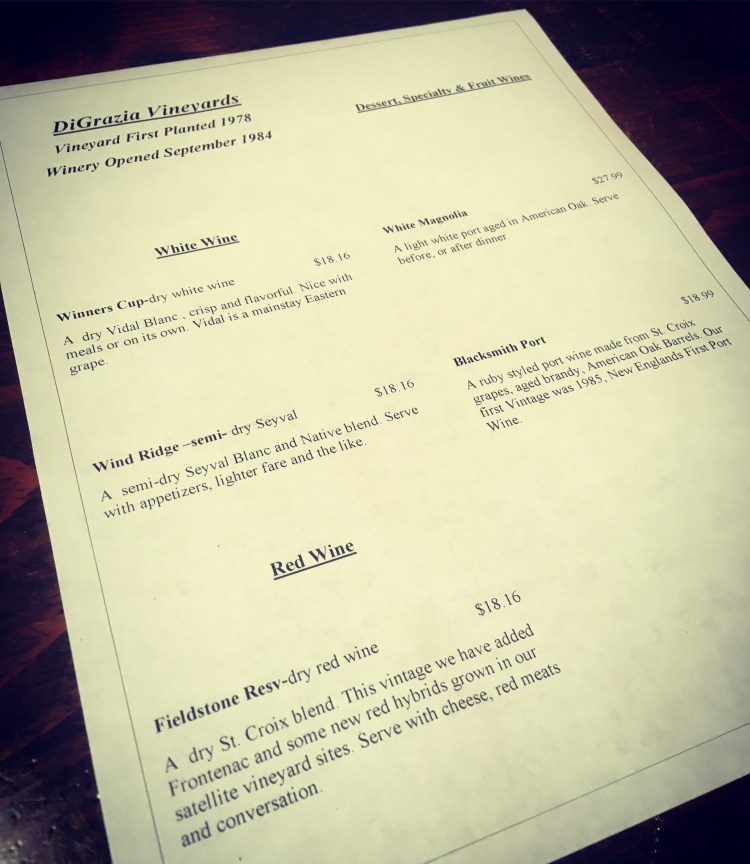 DiGrazia Vineyards
Vineyard First Planted 1978
Winery Opened September 1984
White Wine
$18.16
Winners Cup-dry white wine
A dry Vidal Blanc , crisp and flavorful. Nice with
meals or on its own. Vidal is a mainstay Eastern
grape.
$18.16
Wind Ridge –semi- dry Seyval
A semi-dry Seyval Blanc and Native blend. Serve
with appetizers, lighter fare and the like.
Red Wine
$18.16
Fieldstone Resv-dry red wine
A dry St. Croix blend. This vintage we have added
Frontenac and some new red hybrids grown in our
satellite vineyard sites. Serve with cheese, red meats
and conversation.
Dessert, Specialty & Fruit Wines
$27.99
White Magnolia
A light white port aged in American Oak. Serve
before, or after dinner.
$18.99
Blacksmith Port
A ruby styled port wine made from St. Croix
grapes, aged brandy, American Oak Barrels. Our
first Vintage was 1985, New Englands First Port
Wine.